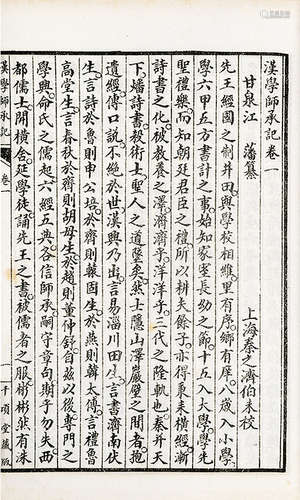 漢學師承記卷一
甘泉江　藩纂　上海秦之濟伯未校
先王經國之制井田與學校相維里有序鄉有庠八歲入小學
學六甲五方書計之事始知家室長幼之節十五入大學學先
聖禮樂而知朝廷君臣之禮所以耕夫餘子亦得秉耒橫經漸
詩書之化被教養之澤濟濟乎洋洋乎三代之隆軌也秦并天
下燔詩書殺術士聖人之道墜矣然士隱山澤巖壁之間者抱
遺經傳口說不絕於世漢興乃出言易淄川田生言書濟南伏
生言詩於魯則申公培於齊則轅固生於燕則韓太傅言禮魯
高堂生言春秋於齊則胡母生於趙則董仲舒自茲以後專門之
學興命氏之儒起六經五典各信師承嗣守章句期乎勿失西
都儒士開橫舍延學徒誦先王之書被儒者之服彬彬然有洙
漢學師承記　卷一　一　千頃堂藏版